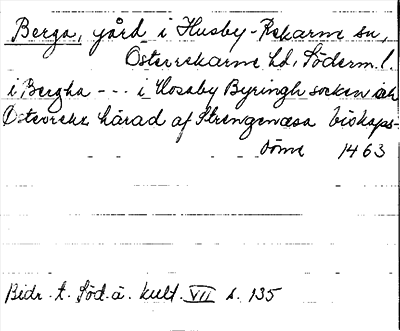 Berga, gård i Husby-Rekarne sn,
Österrekarne hd, Söderm. l.
i Bergha --- i Hosaby Byringh socken och
Østerrekr. härad af Strengenæsa biskops-
döme 1463
Bidr. t. Söd. ä. kult. VII s. 135